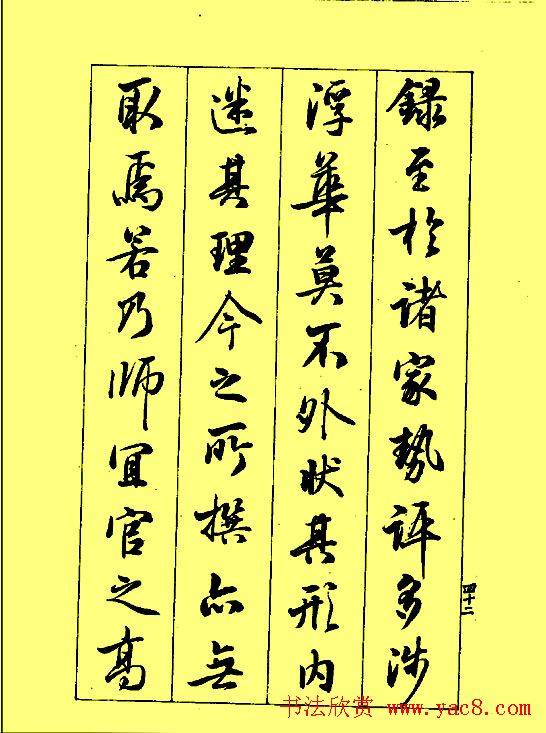 錄至於諸家勢評多涉
浮華莫不外狀其形內
迷其理今之所撰亦無
取焉若乃師宜官之高
四十二
书法欣赏 www.yac8.com